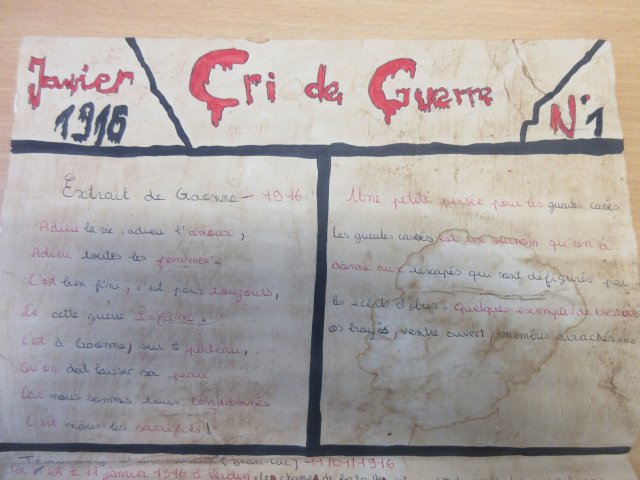 Janvier
1916
Cri de Guerre
N°1
Extrait de Craonne - 1916
Adieu la vie, adieu l'amour,
Adieu toutes les femmes.
C'est bien fini, c'est pour toujours,
De cette guerre infâme.
C'est à Craonne, sur le plateau,
Qu'on doit laisser sa peau
Car nous sommes tous condamnés
C'est nous les sacrifiés!
Une petite pensée pour les gueules cassés
Les gueules cassées est un surnom qu'on a
donné aux rescapés qui sont défigurés par
les éclats d'obus. Quelques exemples de blessures
os broyés, ventre ouvert, membres arrachés...
(Jean-Luc) 11/01/1916
On est le 11 janvier 1916 à Verdun.